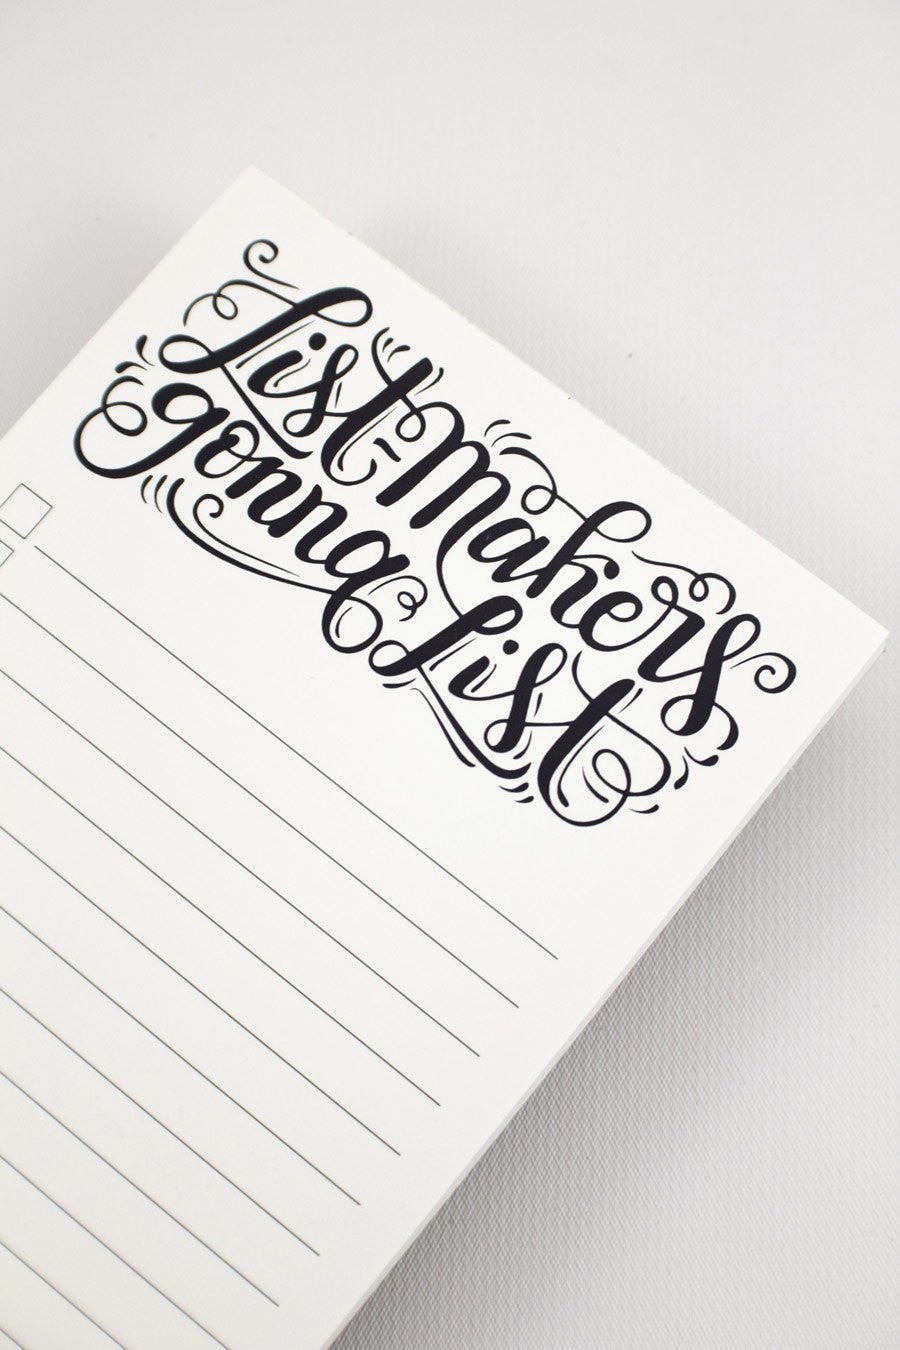 List-Makers
gonna List